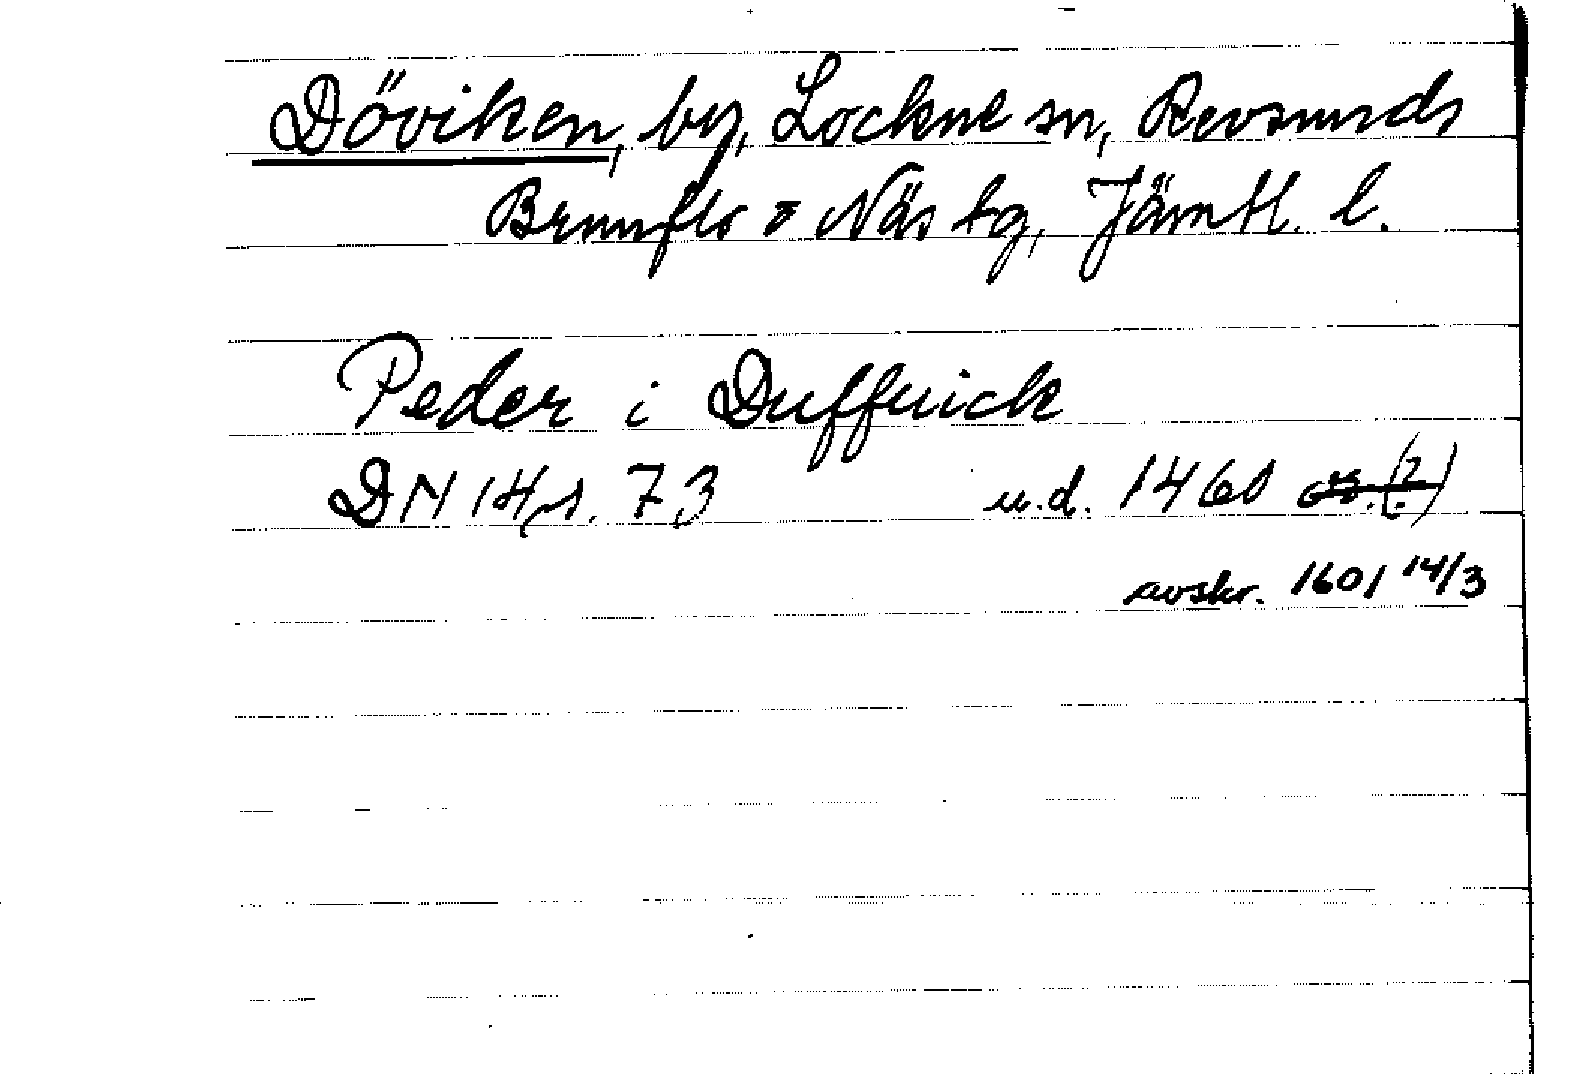 Döviken, by, Lockne sn, Revsunds
Brunflo o Näs tg, Jämtl. l.
Peder i Duffuick
DN 14, s. 73 u.d. 1460 (?)
avskr. 1601 14/3